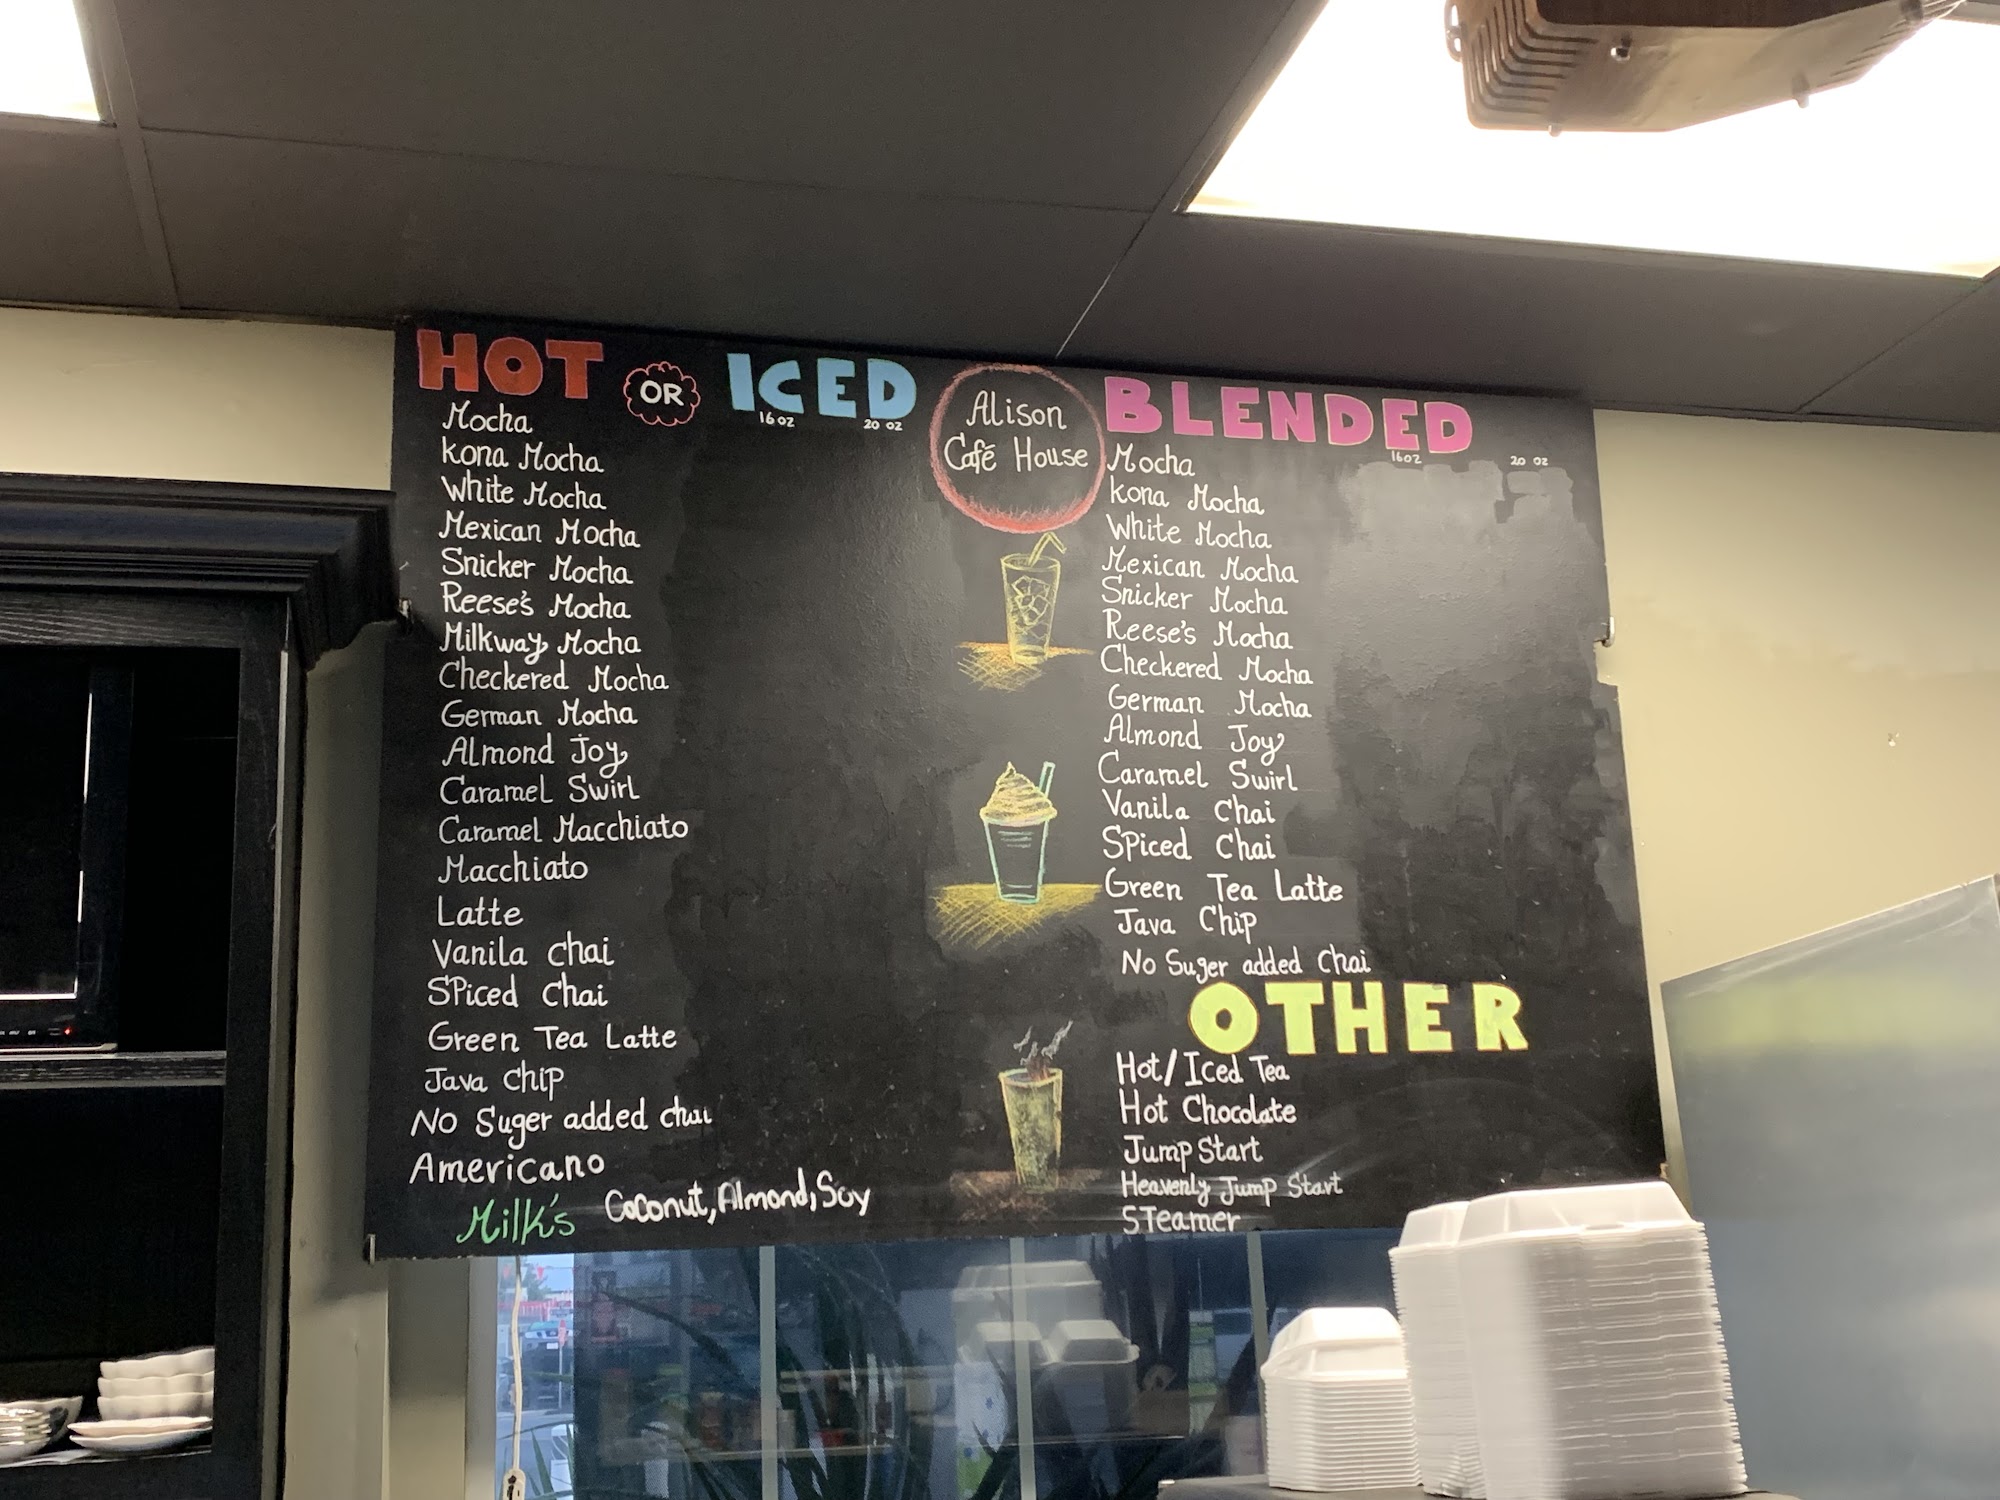 HOT OR ICED
16 oz 20 oz
Mocha
kona Mocha
White Mocha
Mexican Mocha
Snicker Mocha
Reese's Mocha
Milkway Mocha
Checkered Mocha
German Mocha
Almond Joy
Caramel Swirl
Caramel Macchiato
Macchiato
Latte
Vanila Chai
SPiced Chai
Green Tea Latte
Java Chip
No Suger added chai
Americano
Milk's Coconut, Almond, Soy
Alison
Café House
BLENDED
16oz 20 oz
Mocha
kona Mocha
White Mocha
Mexican Mocha
Snicker Mocha
Reese's Mocha
Checkered Mocha
German Mocha
Almond Joy
Caramel Swirl
Vanila Chai
SPiced Chai
Green Tea Latte
Java Chip
No Suger added Chai
OTHER
Hot/Iced Tea
Hot Chocolate
Jump Start
Heavenly Jump Start
STeamer